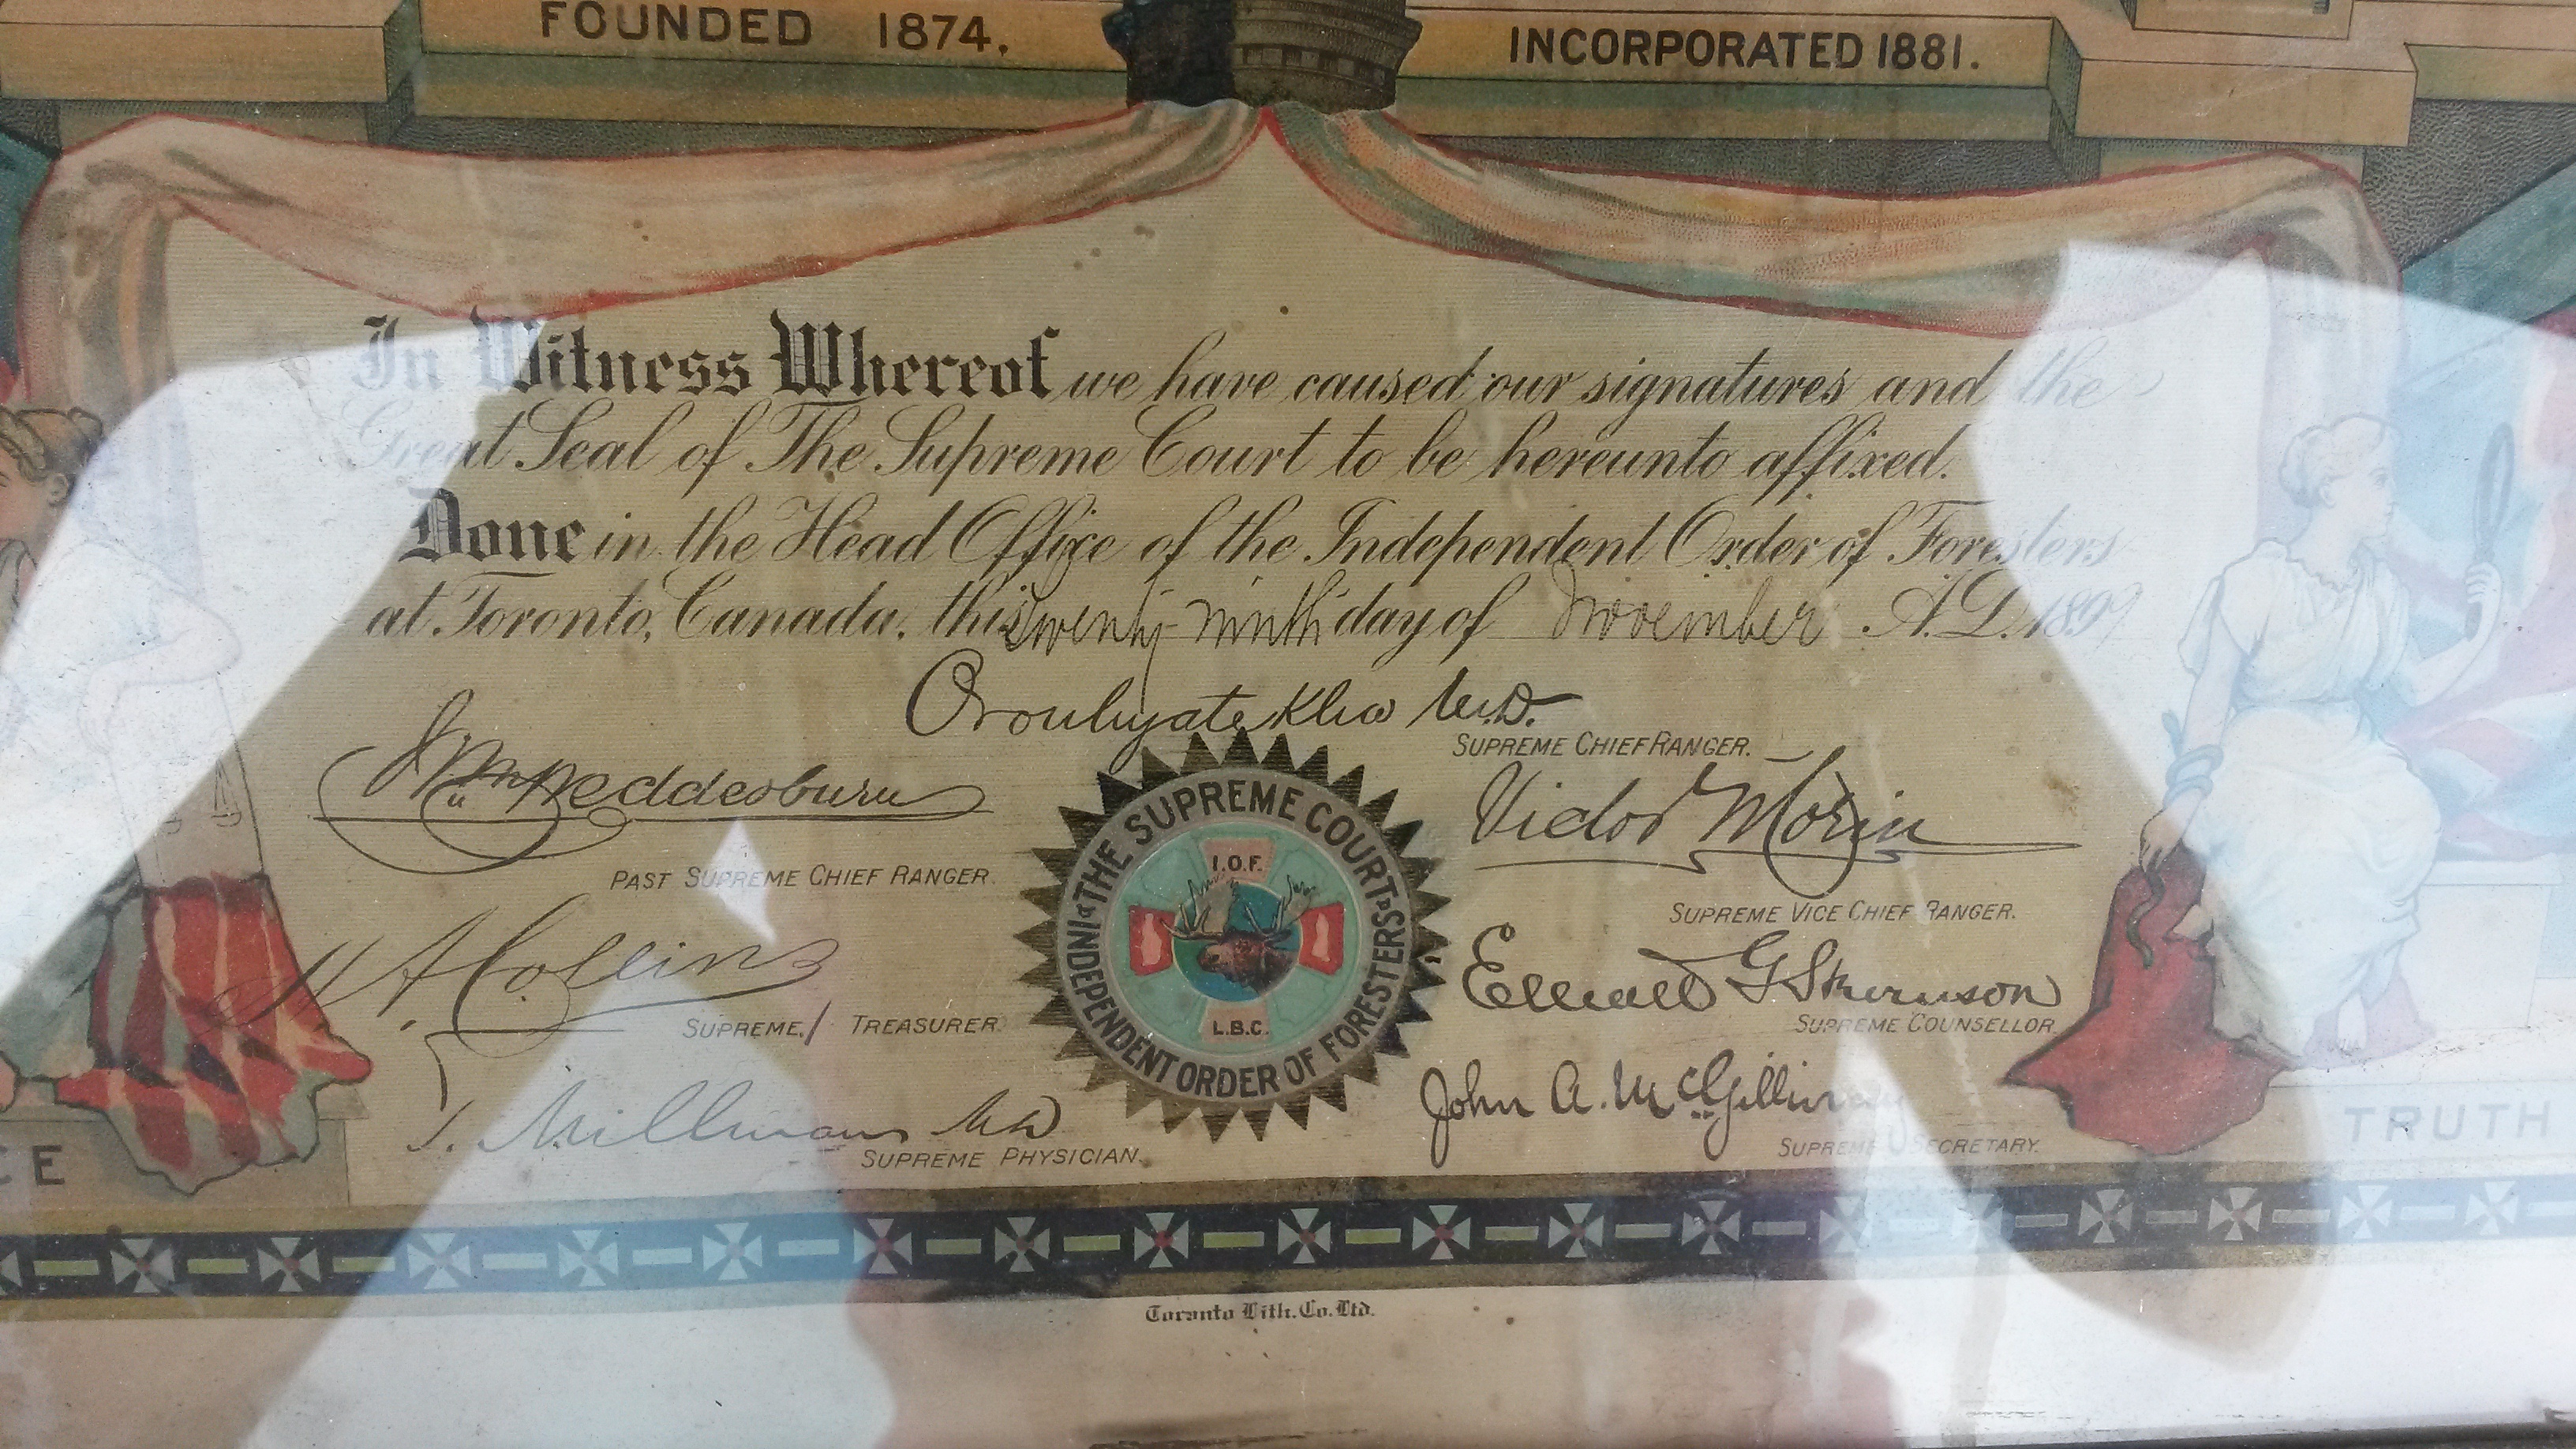 FOUNDED 1874.
INCORPORATED 1881.
In Witness Whereof we have caused our signatures and the
Great Seal of The Supreme Court to be hereunto affixed.
Done in the Head Office of the Independent Order of Foresters
at Toronto, Canada, this twenty-ninth day of November A.D. 1899
Oronhyatekha M.D.
SUPREME CHIEF RANGER.
PAST SUPREME CHIEF RANGER.
Victor Morin
SUPREME VICE CHIEF RANGER.
H A Collins
SUPREME TREASURER.
Elliott G Stevenson
SUPREME COUNSELLOR.
T. Millman MD
SUPREME PHYSICIAN.
John A. McGillivray
SUPREME SECRETARY.
THE SUPREME COURT
INDEPENDENT ORDER OF FORESTERS
I.O.F.
L.B.C.
CE
TRUTH
Toronto Lith. Co. Ltd.